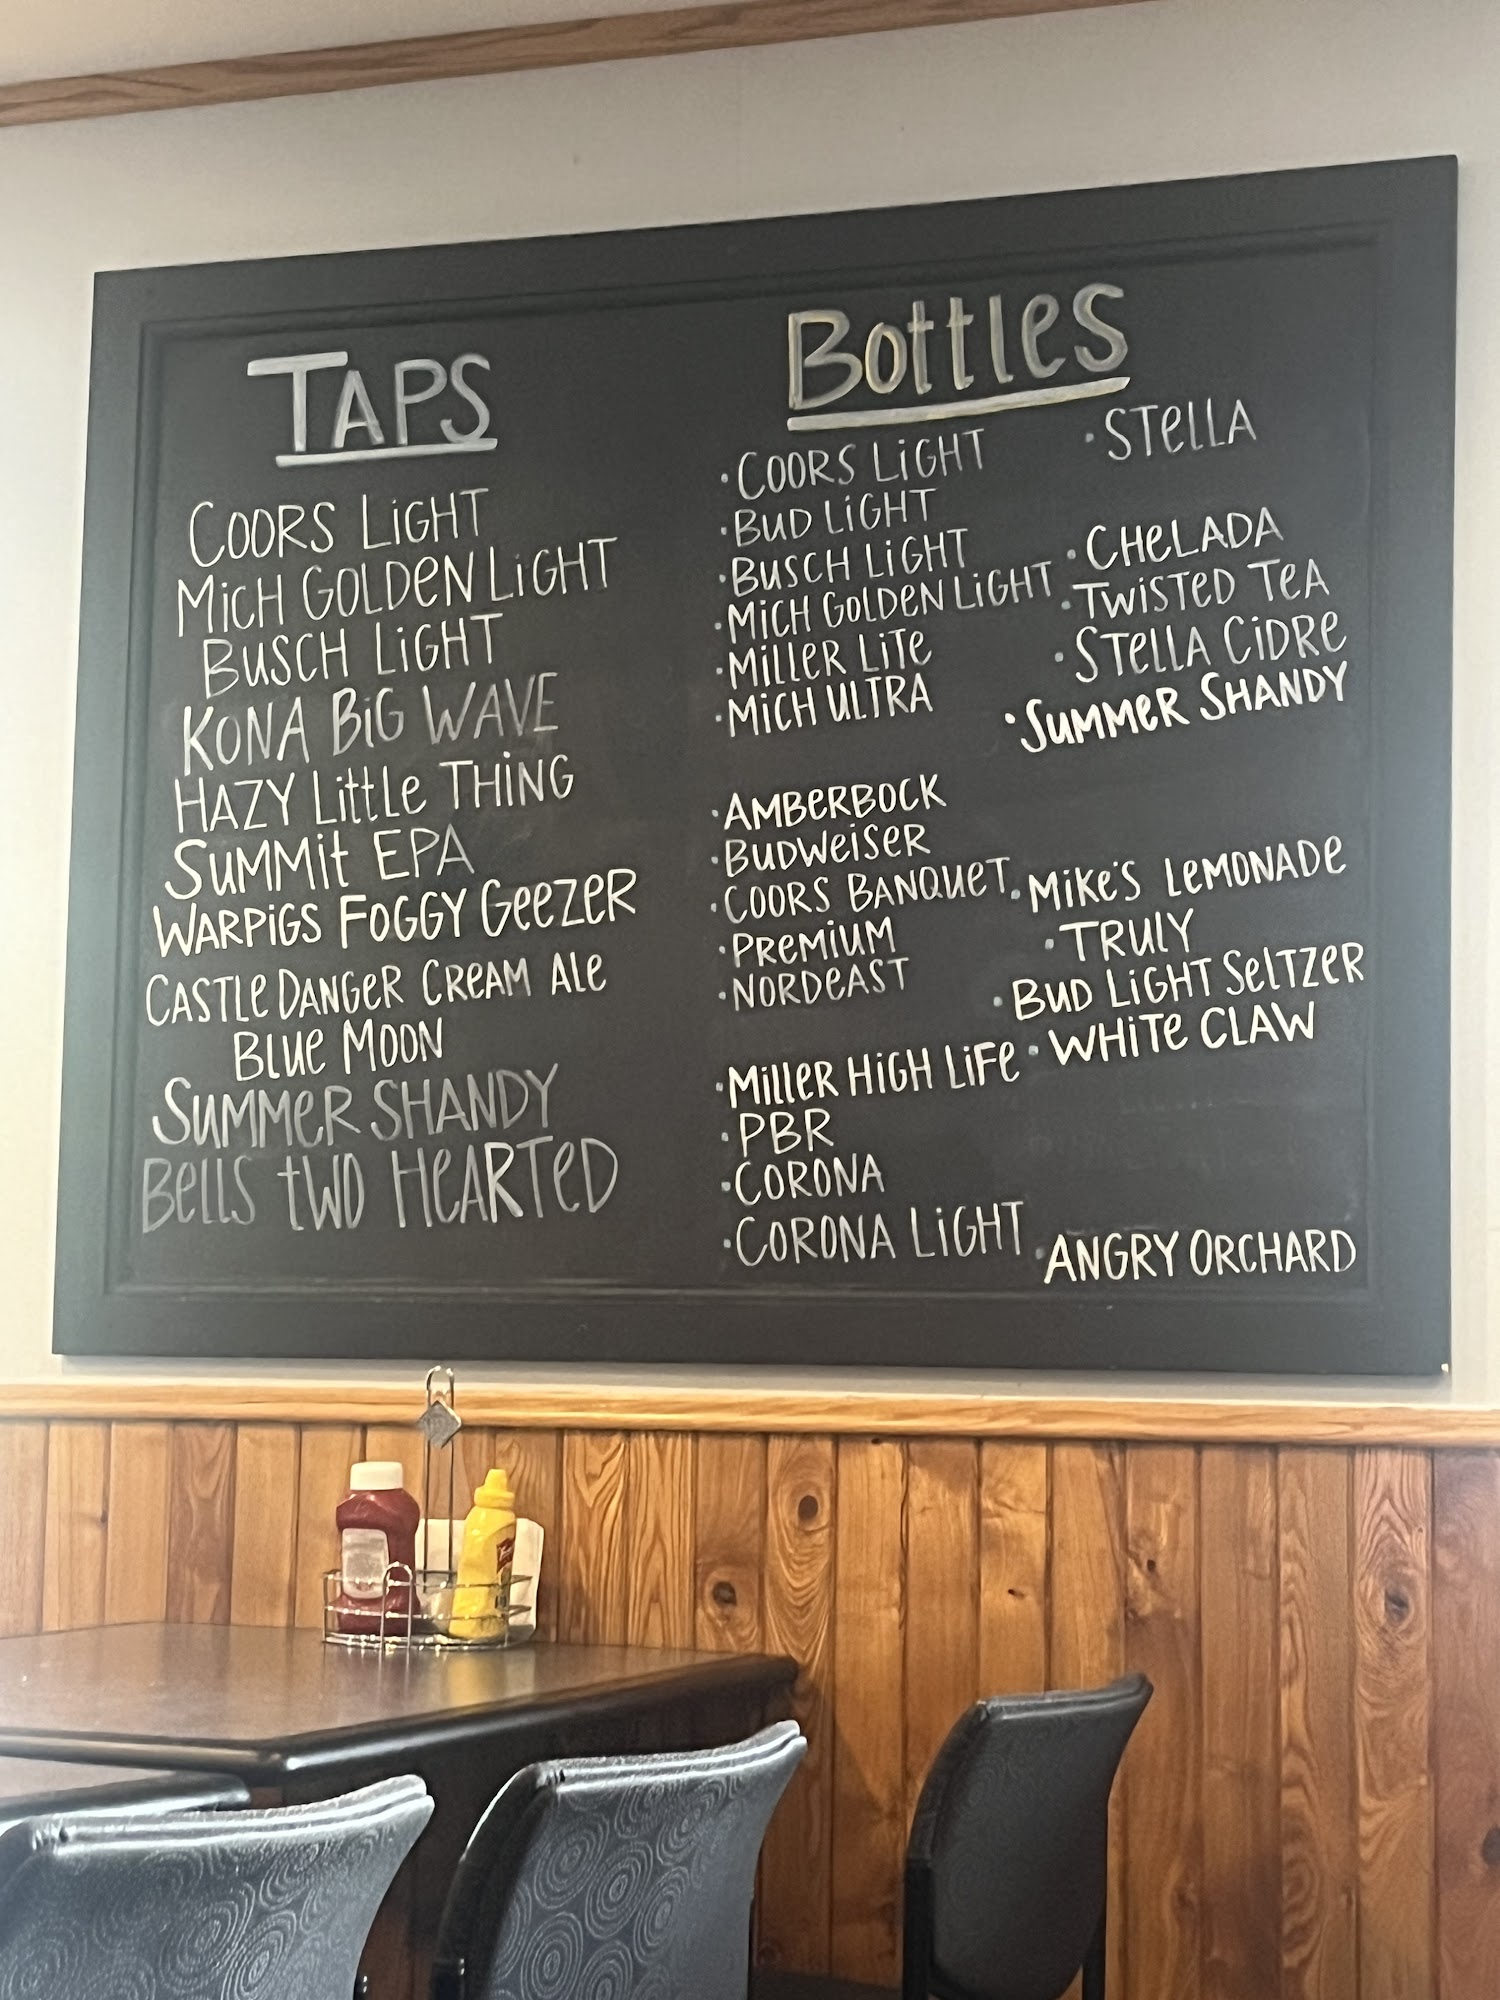 TAPS
COORS LiGHT
MiCH GOLDEN LiGHT
BUSCH LiGHT
KONA BiG WAVE
HAZY Little THiNG
SUMMit EPA
WARPiGS FOGGY GeeZER
CASTLe DANGeR CREAM Ale
BlUe MOON
SUMMeR SHANDY
BellS tWO HeARTeD
Bottles
COORS LiGHT
BUD LiGHT
BUSCH LiGHT
MiCH GOLDEN LiGHT
MilleR LiTe
MiCH ULTRA
AMBeRBOCK
BUDWeiSER
COORS BANQUeT
PReMiUM
NORDeAST
MilleR HiGH LiFe
PBR
CORONA
CORONA LiGHT
STellA
CHeLADA
TWiSTED TeA
STellA CiDRe
SUMMeR SHANDY
MiKe'S LeMONADe
TRULY
BUD LiGHT SelTZER
WHiTe CLAW
ANGRY ORCHARD